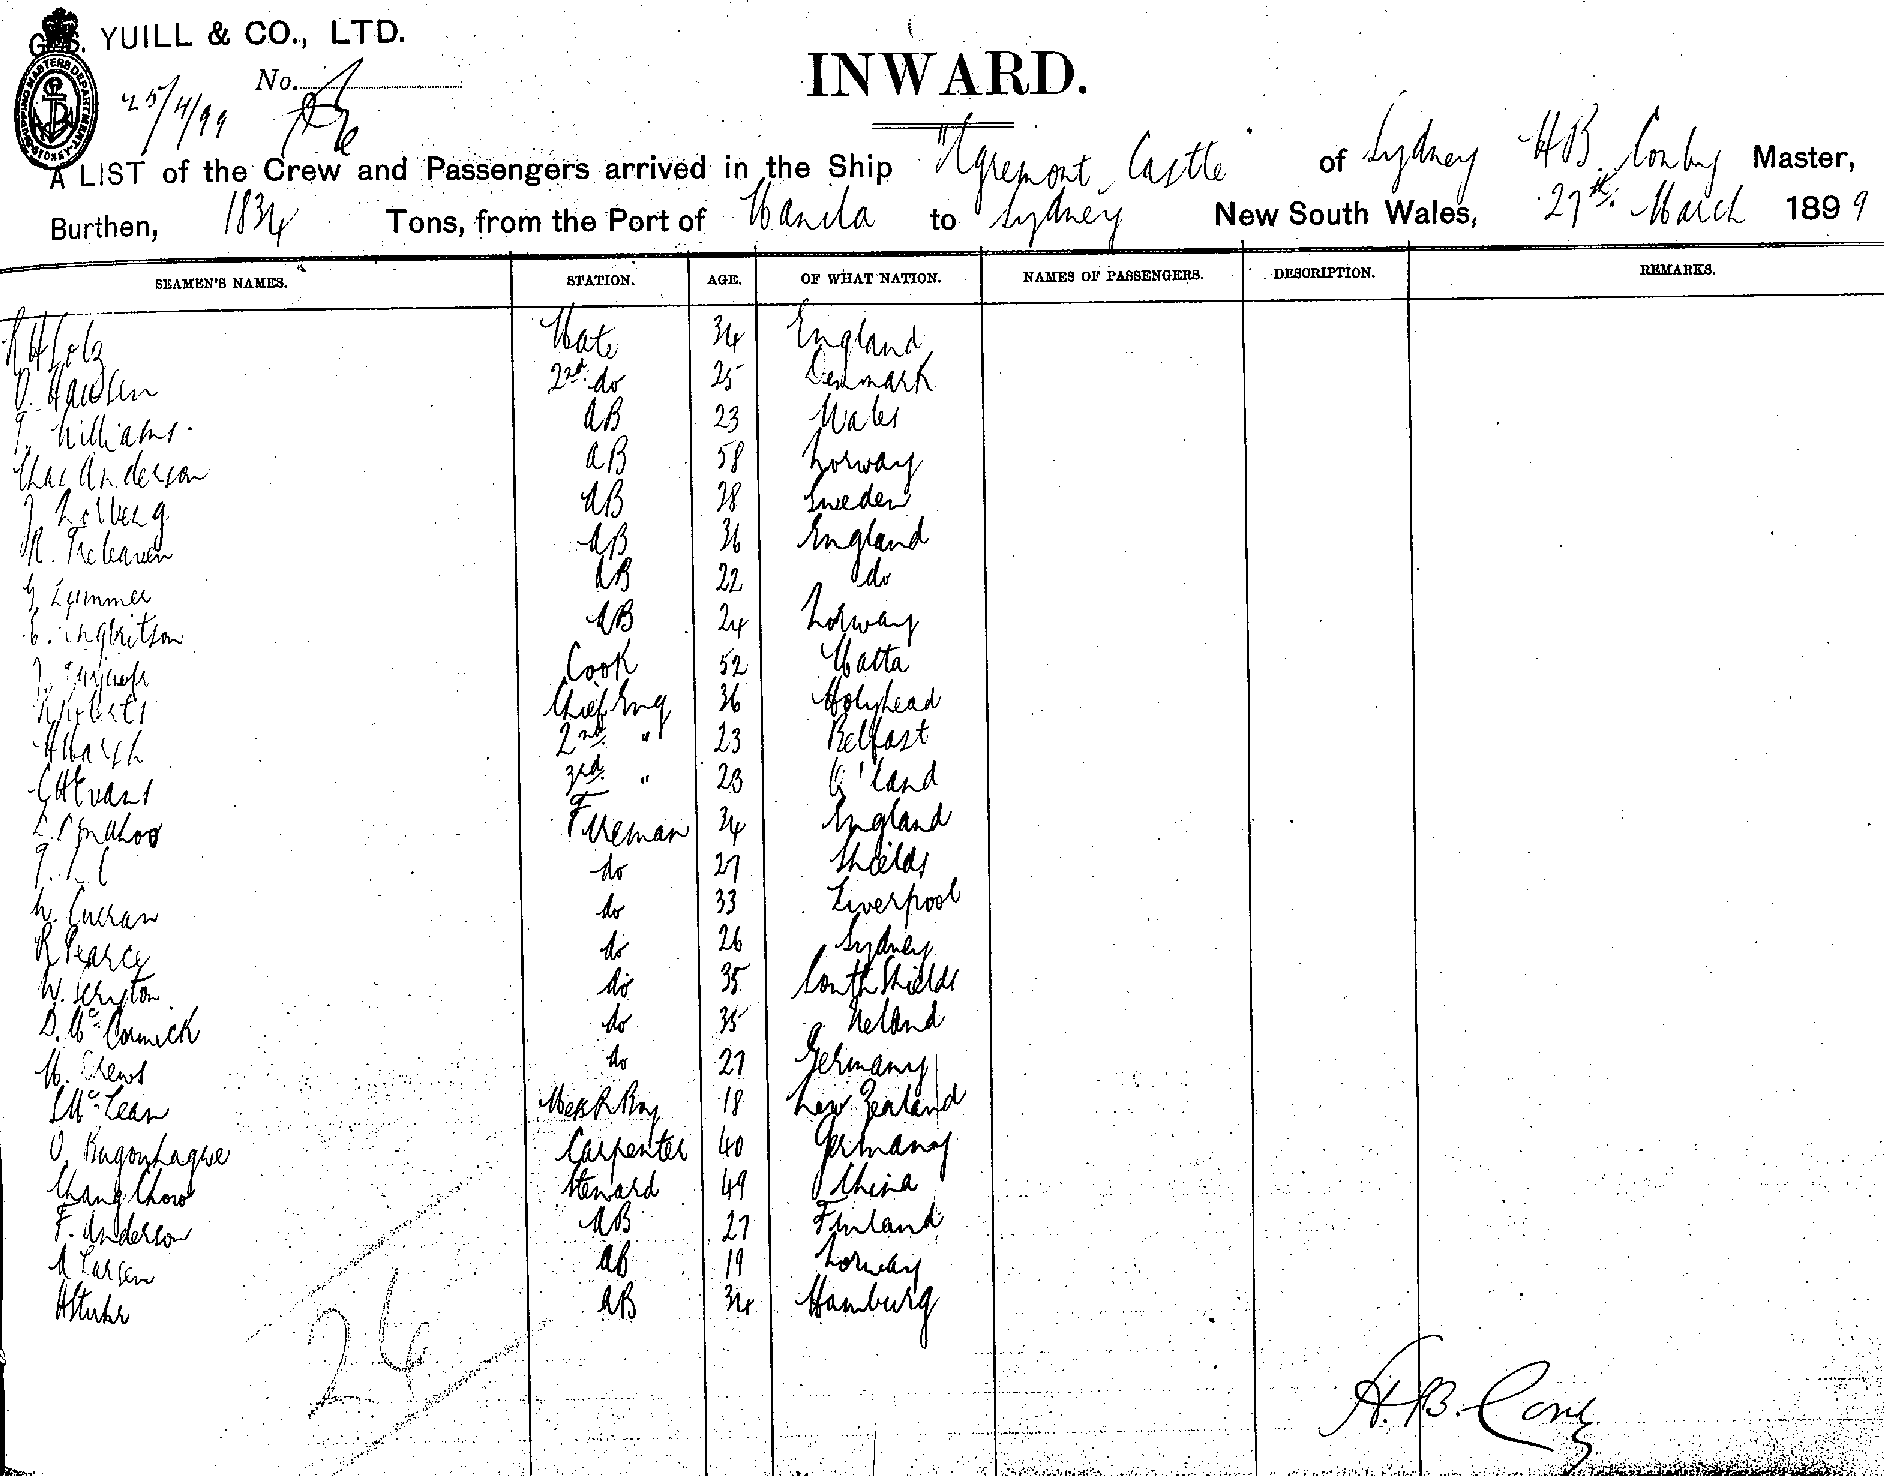 G.S. YUILL & CO., LTD.
INWARD.
No.
25/4/99
A LIST of the Crew and Passengers arrived in the Ship "Egremont Castle" of Sydney H B Master,
Burthen, 1834 Tons, from the Port of Manila to Sydney New South Wales, 27th March 1899
SEAMEN'S NAMES. STATION. AGE. OF WHAT NATION. NAMES OF PASSENGERS. DESCRIPTION. REMARKS.
Mate 34 England
O. Hansen 2nd do 25 Denmark
T. Williams AB 23 Wales
Chas Anderson AB 58 Norway
J Norberg AB 38 Sweden
R. Treleaven AB 36 England
AB 22 do
E. Ingbritson AB 24 Norway
Cook 52 Malta
R Roberts Chief Eng 36 Holyhead
H Marsh 2nd " 23 Belfast
C H Evans 3rd " 28 Q'land
Fireman 34 England
do 27 Shields
W. Curran do 33 Liverpool
R Pearce do 26 Sydney
do 35 South Shields
D. McCormick do 35 Ireland
M. Drews do 27 Germany
McLean Mess R Boy 18 New Zealand
O. Carpenter 40 Germany
Chang Chow Steward 49 China
F. Anderson AB 27 Finland
A Larsen AB 19 Norway
AB 34 Hamburg
26
H.B.